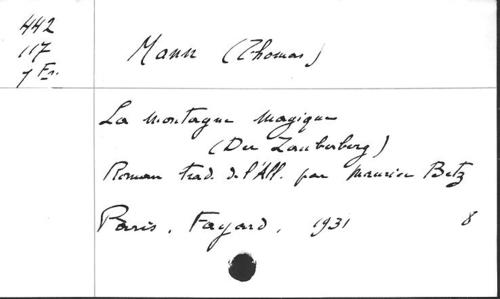 442
117
7 Fr.
Mann (Thomas)
La montagne magique
(Der Zauberberg)
Roman trad. de l'All. par Maurice Betz
Paris, Fayard, 1931 8